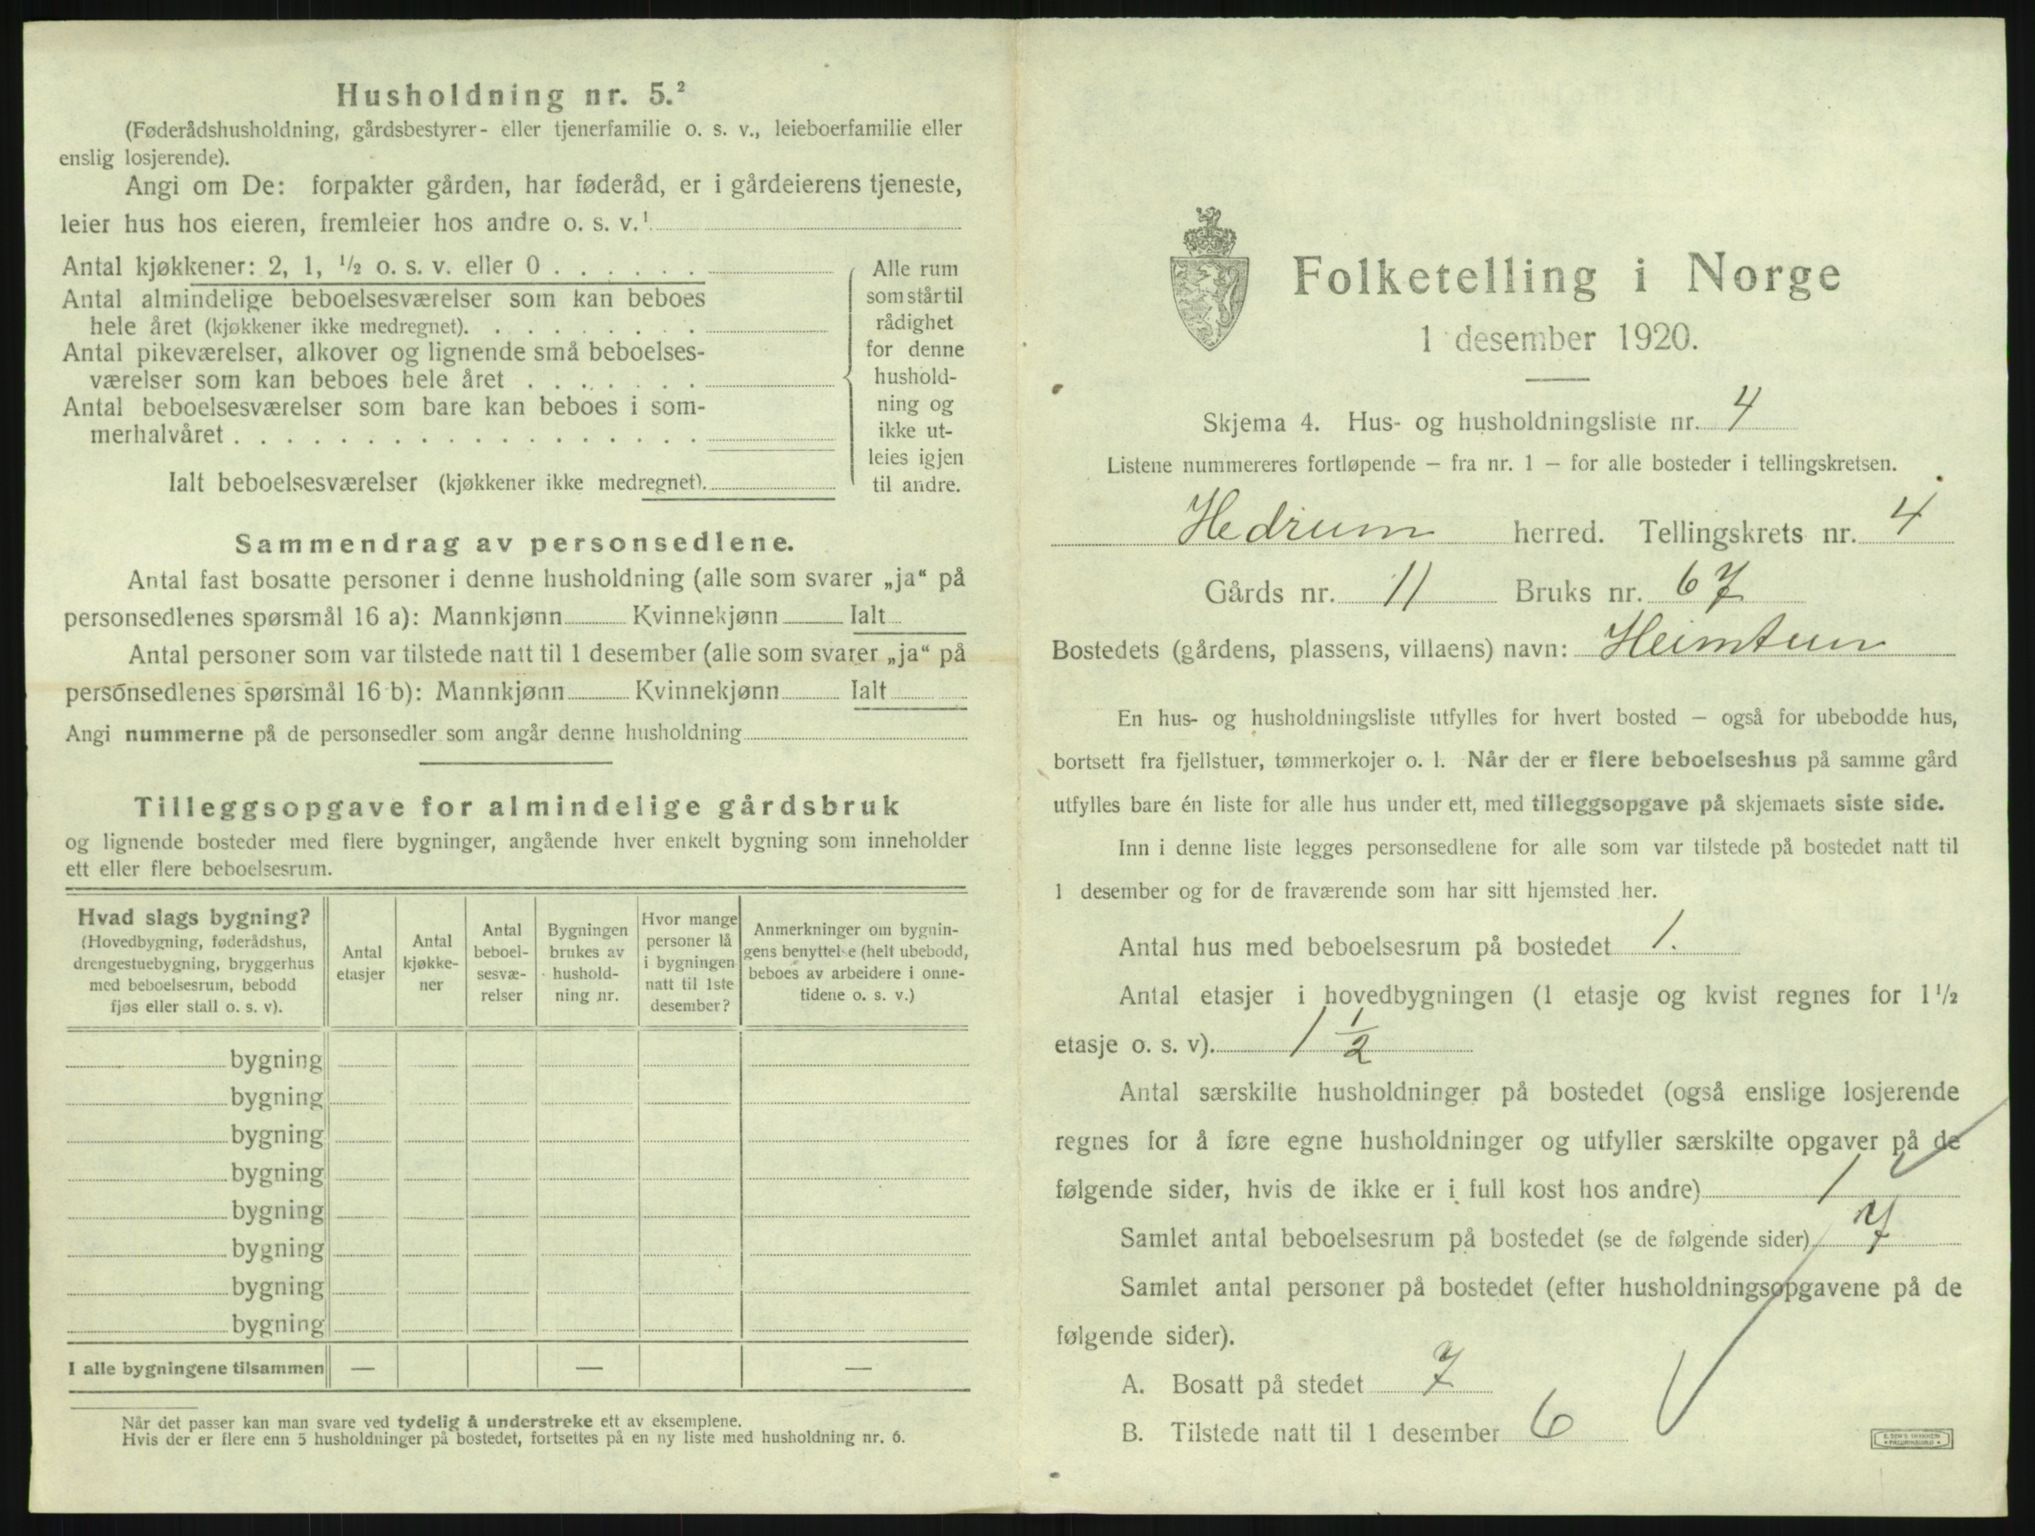 Husholdning nr. 5.²
(Føderådshusholdning, gårdsbestyrer- eller tjenerfamilie o. s. v., leieboerfamilie eller
enslig losjerende).
Angi om De: forpakter gården, har føderåd, er i gårdeierens tjeneste,
leier hus hos eieren, fremleier hos andre o. s. v.¹
Antal kjøkkener: 2, 1, ½ o. s. v. eller 0 . . . . . .
Antal almindelige beboelsesværelser som kan beboes
hele året (kjøkkener ikke medregnet). . . . . . . . .
Antal pikeværelser, alkover og lignende små beboelses-
værelser som kan beboes hele året . . . . . . .
Antal beboelsesværelser som bare kan beboes i som-
merhalvåret . . . . . . . . . . . . . . . . . .
Ialt beboelsesværelser (kjøkkener ikke medregnet).
Alle rum
som står til
rådighet
for denne
hushold-
ning og
ikke ut-
leies igjen
til andre.
Sammendrag av personsedlene.
Antal fast bosatte personer i denne husholdning (alle som svarer „ja“ på
personsedlenes spørsmål 16 a): Mannkjønn Kvinnekjønn Ialt
Antal personer som var tilstede natt til 1 desember (alle som svarer „ja“ på
personsedlenes spørsmål 16 b): Mannkjønn Kvinnekjønn Ialt
Angi nummerne på de personsedler som angår denne husholdning
Tilleggsopgave for almindelige gårdsbruk
og lignende bosteder med flere bygninger, angående hver enkelt bygning som inneholder
ett eller flere beboelsesrum.
Hvad slags bygning?
(Hovedbygning, føderådshus,
drengestuebygning, bryggerhus
med beboelsesrum, bebodd
fjøs eller stall o. s. v).
Antal
etasjer
Antal
kjøkke-
ner
Antal
beboel-
sesvæ-
relser
Bygningen
brukes av
hushold-
ning nr.
Hvor mange
personer lå
i bygningen
natt til 1ste
desember?
Anmerkninger om bygnin-
gens benyttelse (helt ubebodd,
beboes av arbeidere i onne-
tidene o. s. v.)
bygning
bygning
bygning
bygning
bygning
bygning
bygning
bygning
I alle bygningene tilsammen — — —
Når det passer kan man svare ved tydelig å understreke ett av eksemplene.
Hvis der er flere enn 5 husholdninger på bostedet, fortsettes på en ny liste med husholdning nr. 6.
Folketelling i Norge
1 desember 1920.
Skjema 4. Hus- og husholdningsliste nr. 4
Listene nummereres fortløpende – fra nr. 1 – for alle bosteder i tellingskretsen.
Hedrum herred. Tellingskrets nr. 4
Gårds nr. 11 Bruks nr. 67
Bostedets (gårdens, plassens, villaens) navn: Heimtun
En hus- og husholdningsliste utfylles for hvert bosted – også for ubebodde hus,
bortsett fra fjellstuer, tømmerkojer o. l. Når der er flere beboelseshus på samme gård
utfylles bare én liste for alle hus under ett, med tilleggsopgave på skjemaets siste side.
Inn i denne liste legges personsedlene for alle som var tilstede på bostedet natt til
1 desember og for de fraværende som har sitt hjemsted her.
Antal hus med beboelsesrum på bostedet 1.
Antal etasjer i hovedbygningen (1 etasje og kvist regnes for 1½
etasje o. s. v). 1 ½
Antal særskilte husholdninger på bostedet (også enslige losjerende
regnes for å føre egne husholdninger og utfyller særskilte opgaver på de
følgende sider, hvis de ikke er i full kost hos andre) 1
Samlet antal beboelsesrum på bostedet (se de følgende sider) 7
Samlet antal personer på bostedet (efter husholdningsopgavene på de
følgende sider).
A. Bosatt på stedet 7
B. Tilstede natt til 1 desember 6